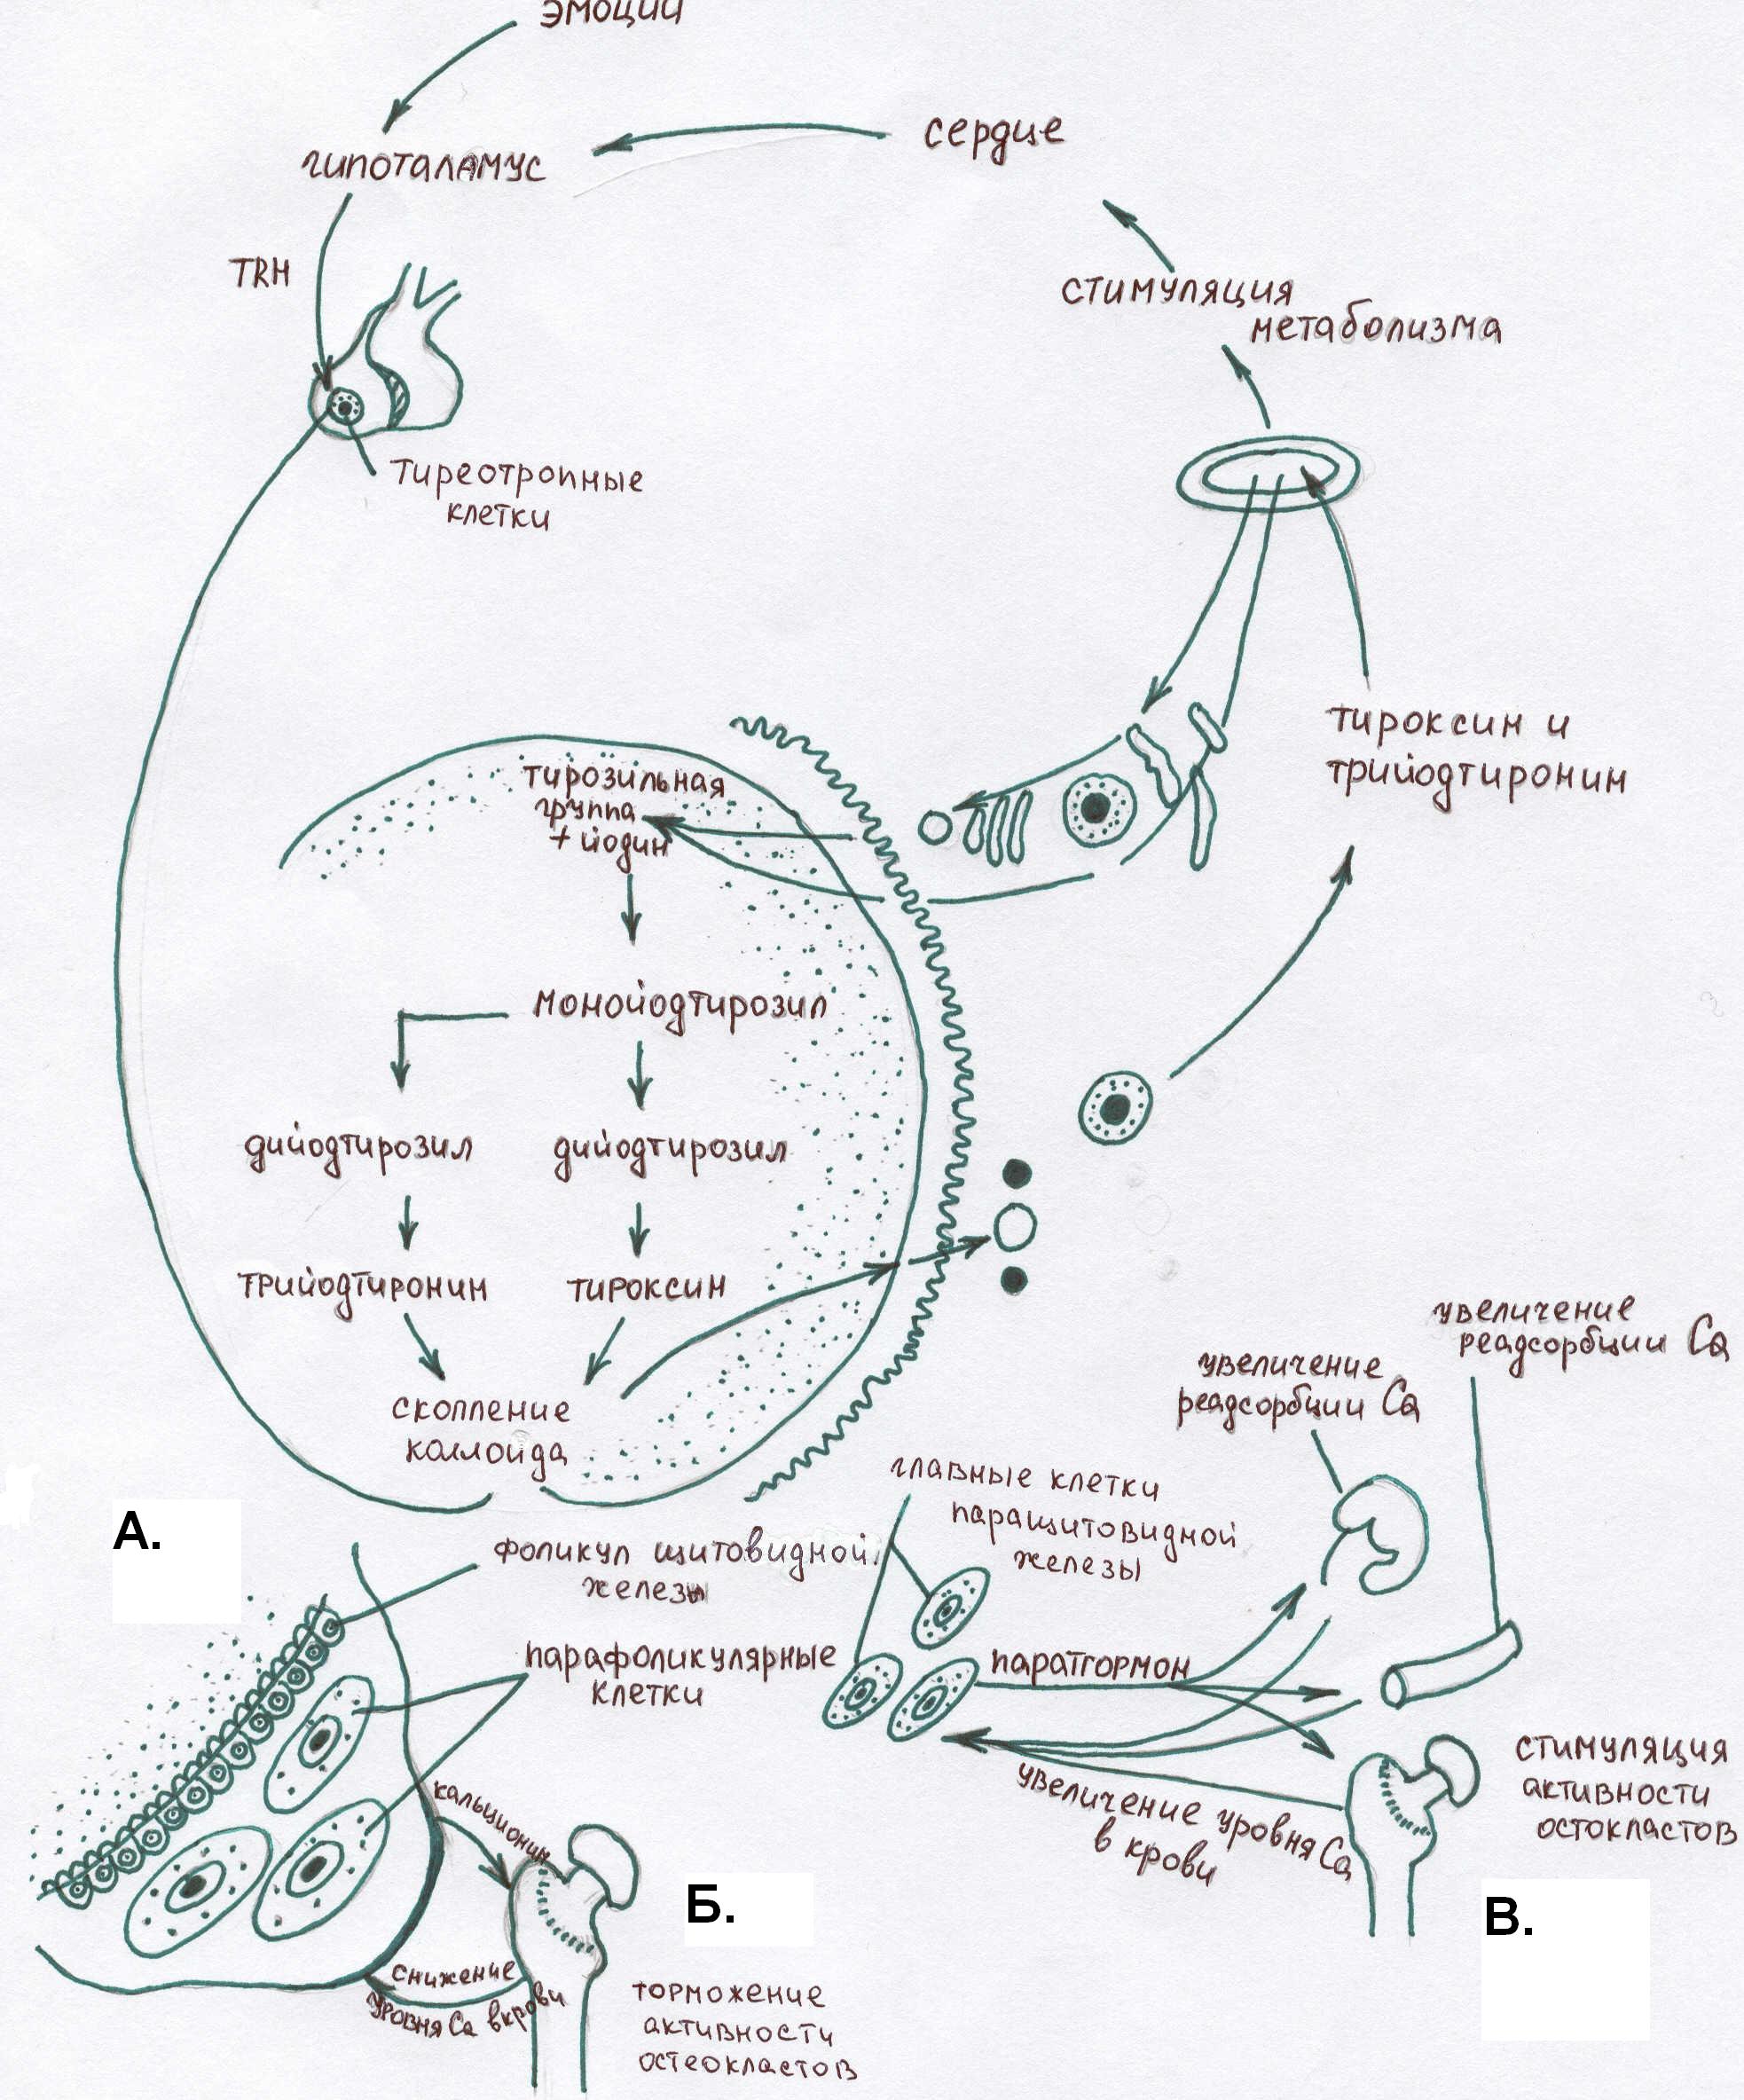 эмоции
гипоталамус
сердце
TRH
стимуляция
метаболизма
тиреотропные
клетки
тироксин и
трийодтиронин
тирозильная
группа
+ йодин
монойодтирозил
дийодтирозил
дийодтирозил
трийодтиронин
тироксин
скопление
коллоида
увеличение
реадсорбции Ca
увеличение
реадсорбции Ca
А.
главные клетки
паращитовидной
железы
фоликул щитовидной
железы
парафоликулярные
клетки
паратгормон
увеличение уровня Ca
в крови
стимуляция
активности
остокластов
кальционин
Б.
В.
снижение
уровня Ca в крови
торможение
активности
остеокластов